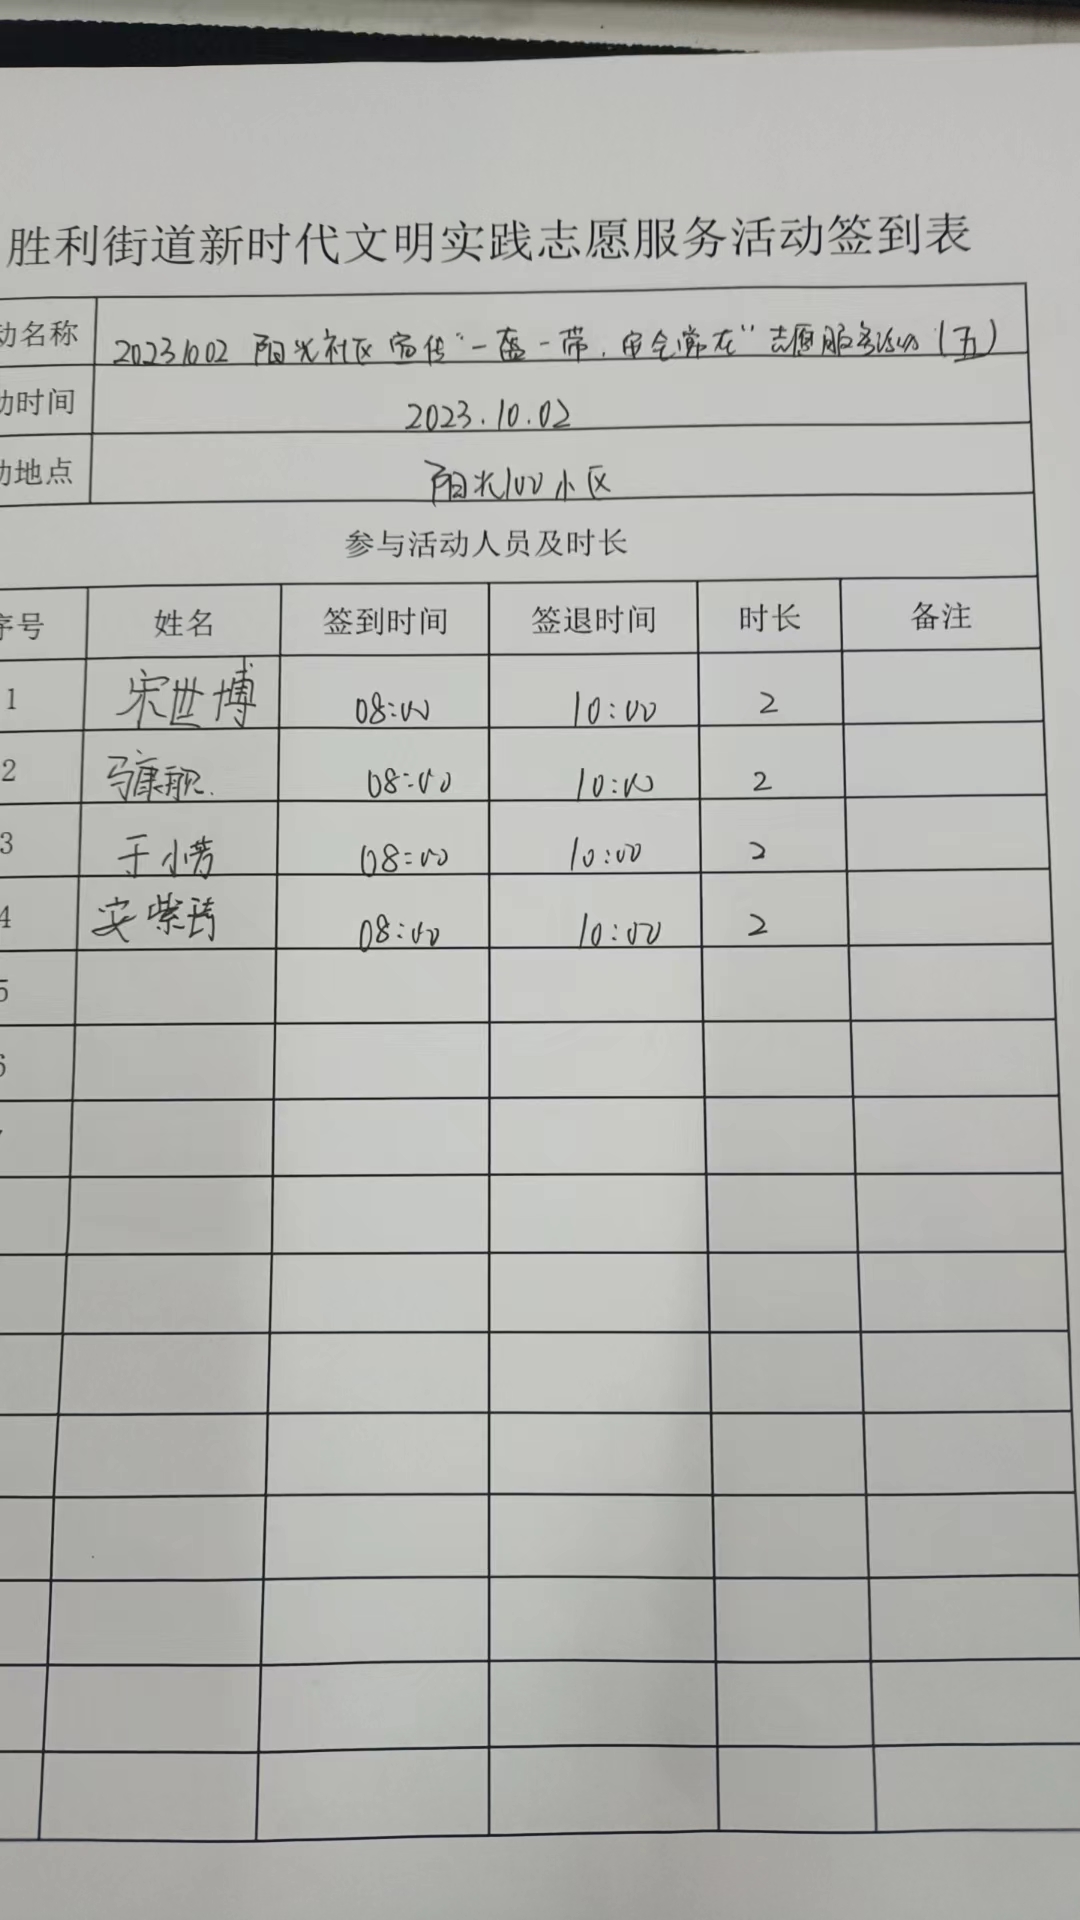 胜利街道新时代文明实践志愿服务活动签到表
动名称 20231002 阳光社区宣传“一盔一带,安全常在”志愿服务活动(五)
动时间 2023.10.02
动地点 阳光100小区
参与活动人员及时长
序号 姓名 签到时间 签退时间 时长 备注
1 宋世博 08:00 10:00 2
2 马康 08:00 10:00 2
3 于小芳 08:00 10:00 2
4 安紫琦 08:00 10:00 2
5
6